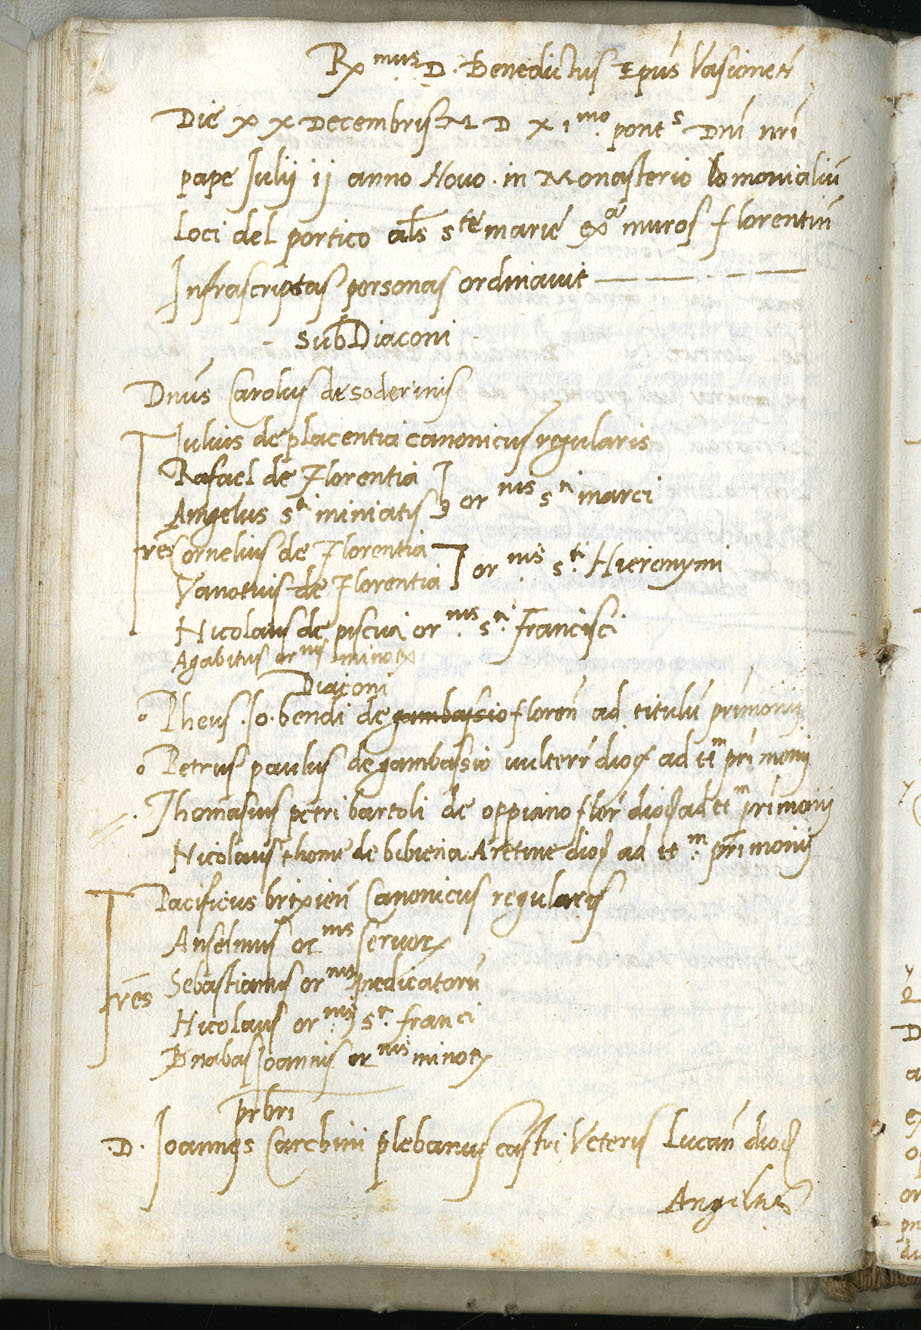 Rx mus D. Benedictus Epus Vasionen
Die xx Decembris M D x imo. pont s Dni nri
pape Julij ij anno Nono. in Monasterio monialiu
Loci del portico als ste marie ex a muros florentin
Infrascriptas personas ordinavit
SubDiaconi
Dnus Carolus de soderinis
Julius de placentia canonicus regularis
Rafael de Florentia
Angelus sti miniatis or nis s ti marci
fres Cornelius de Florentia
Vanotius de Florentia or nis s ti Hieronymi
Nicolaus de piscia or nis s ti Francisci
Agabitus or nis minor
Diaconi
Pheus. Jo. bendi de gambassio floren ad titulu primonij
Petrus paulus de gambassio vulter dioc ad tt m primonij
Thomasius petri bartoli de oppiano flor dioc ad tt m primonij
Nicolaus thome de bibiena Aretine dioc ad tt m. primonij
Pacificus brixien Canonicus regularis
Anselmus or nis servor
fres Sebastianus or nis predicatoru
Nicolaus or nis s ti franci
Bnabas Joannis or nis minor
prbri
D. Joannes Carchini plebanus castri Veteris Lucan dioc
Angelus